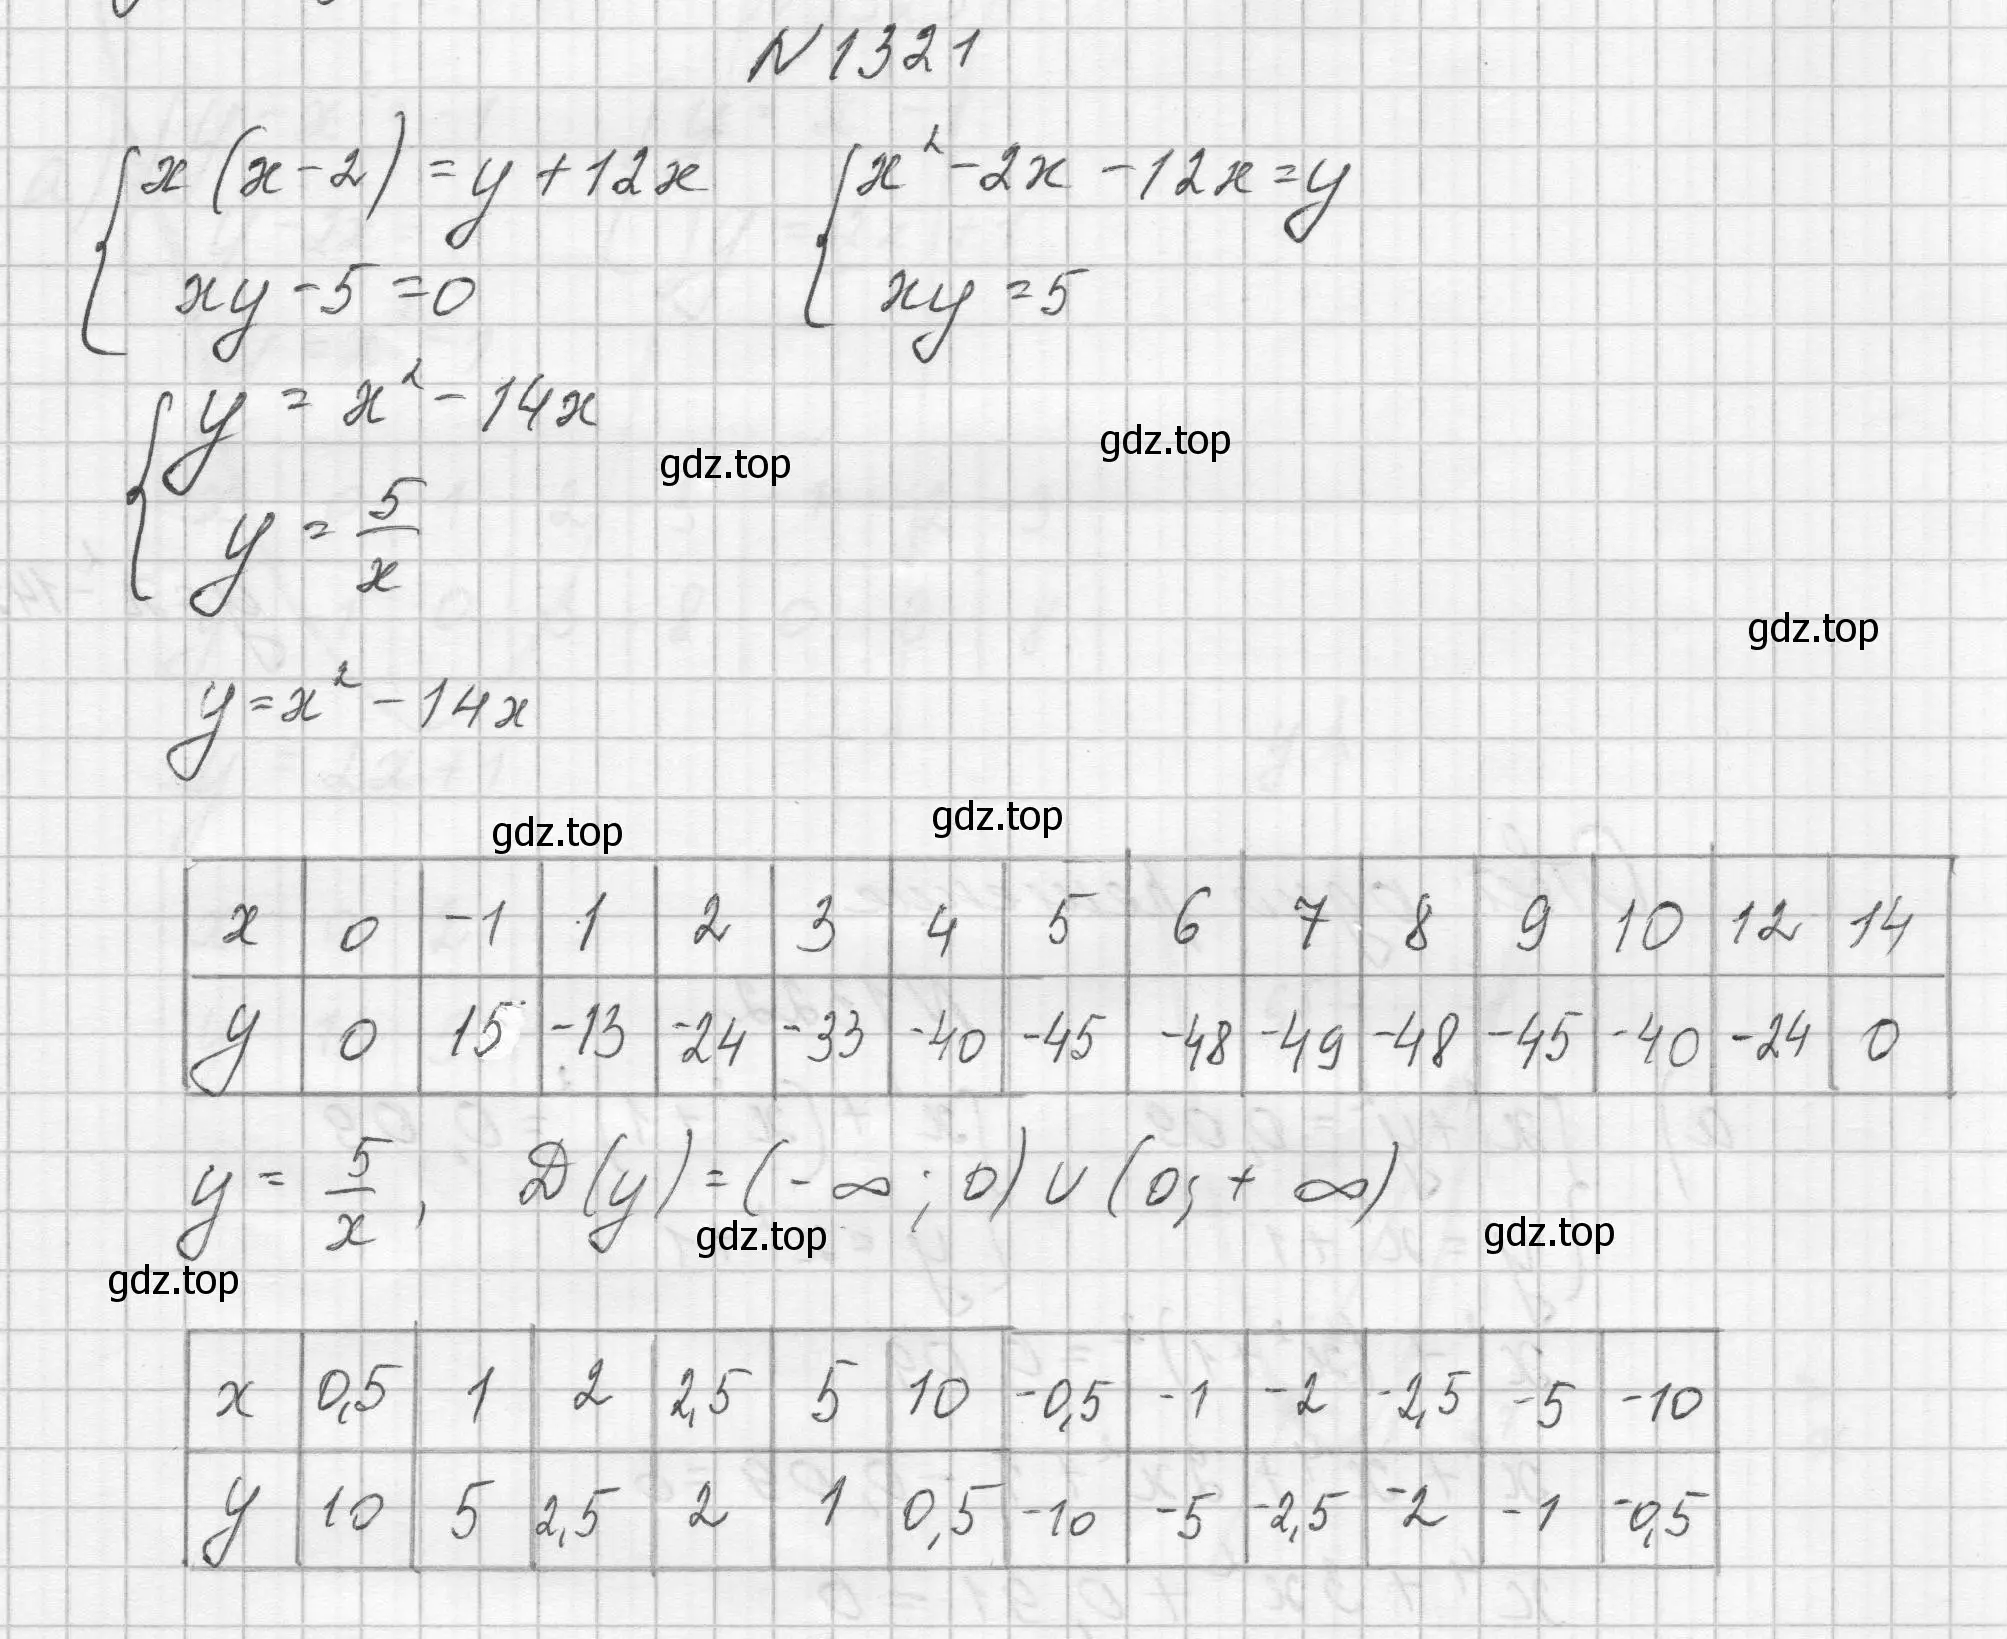 N 1321
{ x(x-2) = y + 12x    { x² - 2x - 12x = y
xy - 5 = 0    xy = 5
{ y = x² - 14x
gdz.top gdz.top
y = 5/x
gdz.top
y = x² - 14x
gdz.top gdz.top
x 0 -1 1 2 3 4 5 6 7 8 9 10 12 14
y 0 15 -13 -24 -33 -40 -45 -48 -49 -48 -45 -40 -24 0
y = 5/x , D(y) = (-∞; 0) ∪ (0; +∞)
gdz.top gdz.top
gdz.top
x 0,5 1 2 2,5 5 10 -0,5 -1 -2 -2,5 -5 -10
y 10 5 2,5 2 1 0,5 -10 -5 -2,5 -2 -1 -0,5